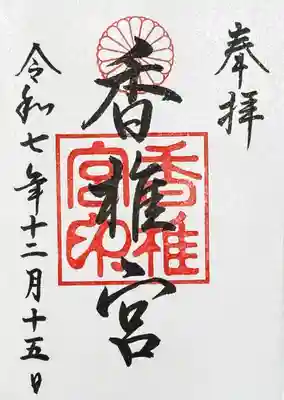 奉拝
香椎宮
香椎宮印
令和七年十二月十五日